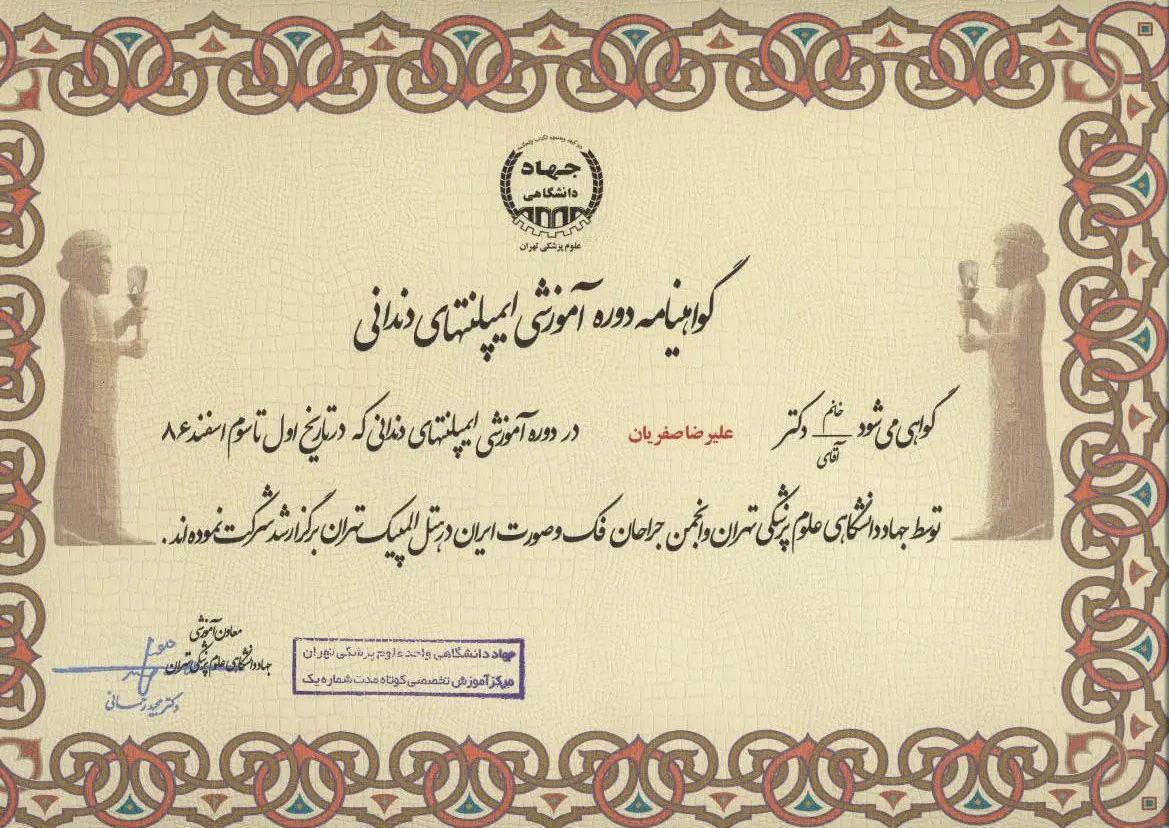 جهاد
دانشگاهی
علوم پزشکی تهران
گواهینامه دوره آموزشی ایمپلنتهای دندانی
گواهی می شود خانم / آقای دکتر علیرضا صفریان در دوره آموزشی ایمپلنتهای دندانی که در تاریخ اول تا سوم اسفند ۸۶
توسط جهاد دانشگاهی علوم پزشکی تهران و انجمن جراحان فک و صورت ایران در هتل المپیک تهران برگزار شد شرکت نموده اند.
معاون آموزشی
جهاد دانشگاهی علوم پزشکی تهران
دکتر مجید
جهاد دانشگاهی واحد علوم پزشکی تهران
مرکز آموزش تخصصی کوتاه مدت شماره یک